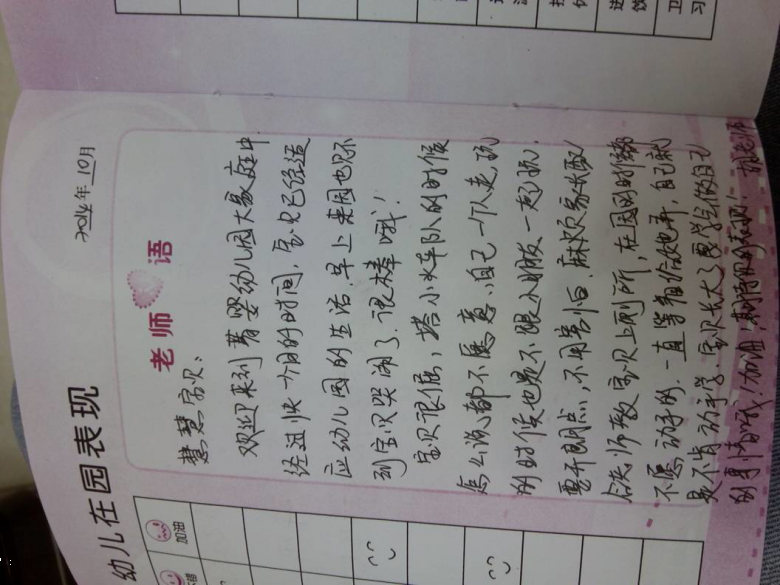 幼儿在园表现
2014年10月
老师 语
慧慧宝贝：
欢迎来到菁婴幼儿园大家庭中
经过快一个月的时间，宝贝已经适
应幼儿园的生活，早上来园也听不
到宝贝哭闹了，很棒哦！
宝贝很倔，搭小火车队的时候
怎么说都不愿意，自己一个人走，玩
的时候也是不跟小朋友一起玩，
要开朗点，不用害怕。麻烦家长配
合老师教宝贝上厕所，在园的时候都
不愿动手的，一直等着给她弄，自己就
是不肯动手学，宝贝长大了要学会做自己
的事情哦！加油，期待你的表现！
加油